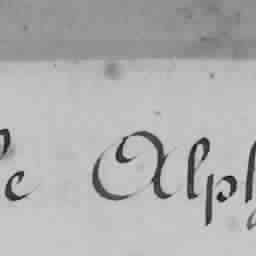 c Alph